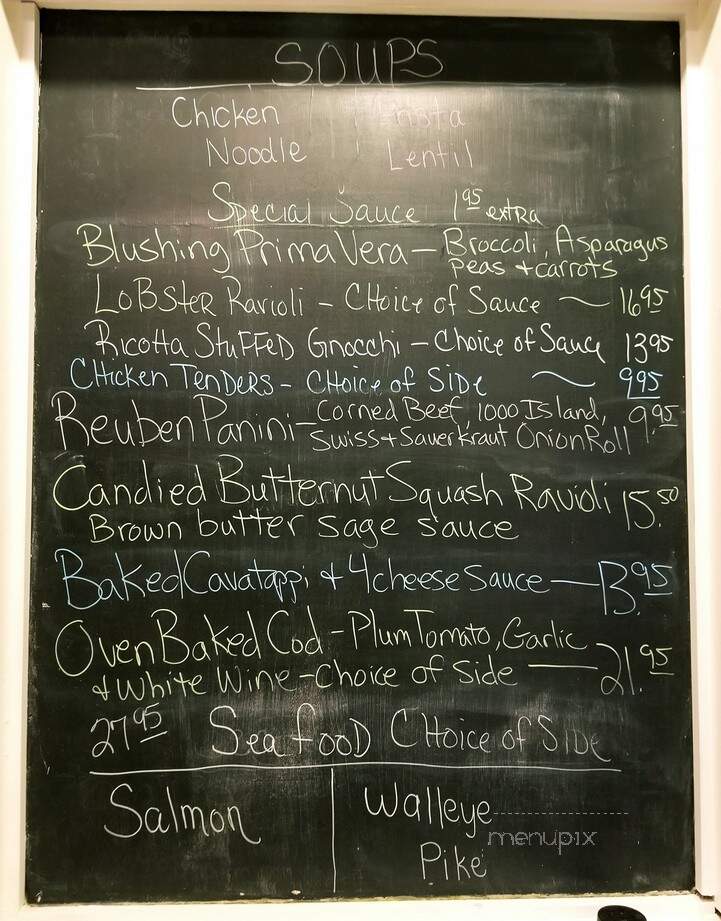 SOUPS
Chicken
Noodle
Pasta
Lentil
Special Sauce 1.95 extra
Blushing PrimaVera - Broccoli, Asparagus
peas + carrots
LoBster Ravioli - CHoice of Sauce ~ 16.95
Ricotta StuFFeD Gnocchi - Choice of Sauce 13.95
CHicken TenDeRs - CHoice of SiDe ~ 9.95
Reuben Panini - Corned Beef, 1000 Island, 9.95
Swiss + SauerKraut Onion Roll
Candied Butternut Squash Ravioli 15.50
Brown butter sage sauce
Baked Cavatappi & 4 cheese Sauce - 13.95
Oven Baked Cod - Plum Tomato, Garlic
& White Wine - Choice of Side - 21.95
27.95 SeafooD CHoice of SiDe
Salmon
Walleye
Pike
menupix